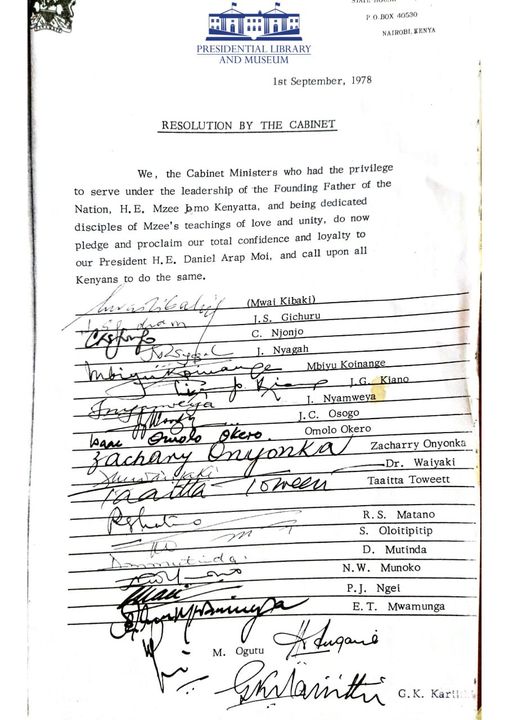 STATE HOUSE
P.O.BOX 40530
NAIROBI, KENYA
PRESIDENTIAL LIBRARY
AND MUSEUM
1st September, 1978
RESOLUTION BY THE CABINET
We, the Cabinet Ministers who had the privilege
to serve under the leadership of the Founding Father of the
Nation, H.E. Mzee Jomo Kenyatta, and being dedicated
disciples of Mzee's teachings of love and unity, do now
pledge and proclaim our total confidence and loyalty to
our President H.E. Daniel Arap Moi, and call upon all
Kenyans to do the same.
(Mwai Kibaki)
J.S. Gichuru
C. Njonjo
J. Nyagah
Mbiyu Koinange Mbiyu Koinange
J.G. Kiano
J. Nyamweya
J.C. Osogo
Isaac Omolo Okero. Omolo Okero
Zachary Onyonka Zacharry Onyonka
Dr. Waiyaki
Taaitta Toweett Taaitta Toweett
R.S. Matano
S. Oloitipitip
D. Mutinda
N.W. Munoko
P.J. Ngei
E.T. Mwamunga
M. Ogutu
G.K. Kariithi